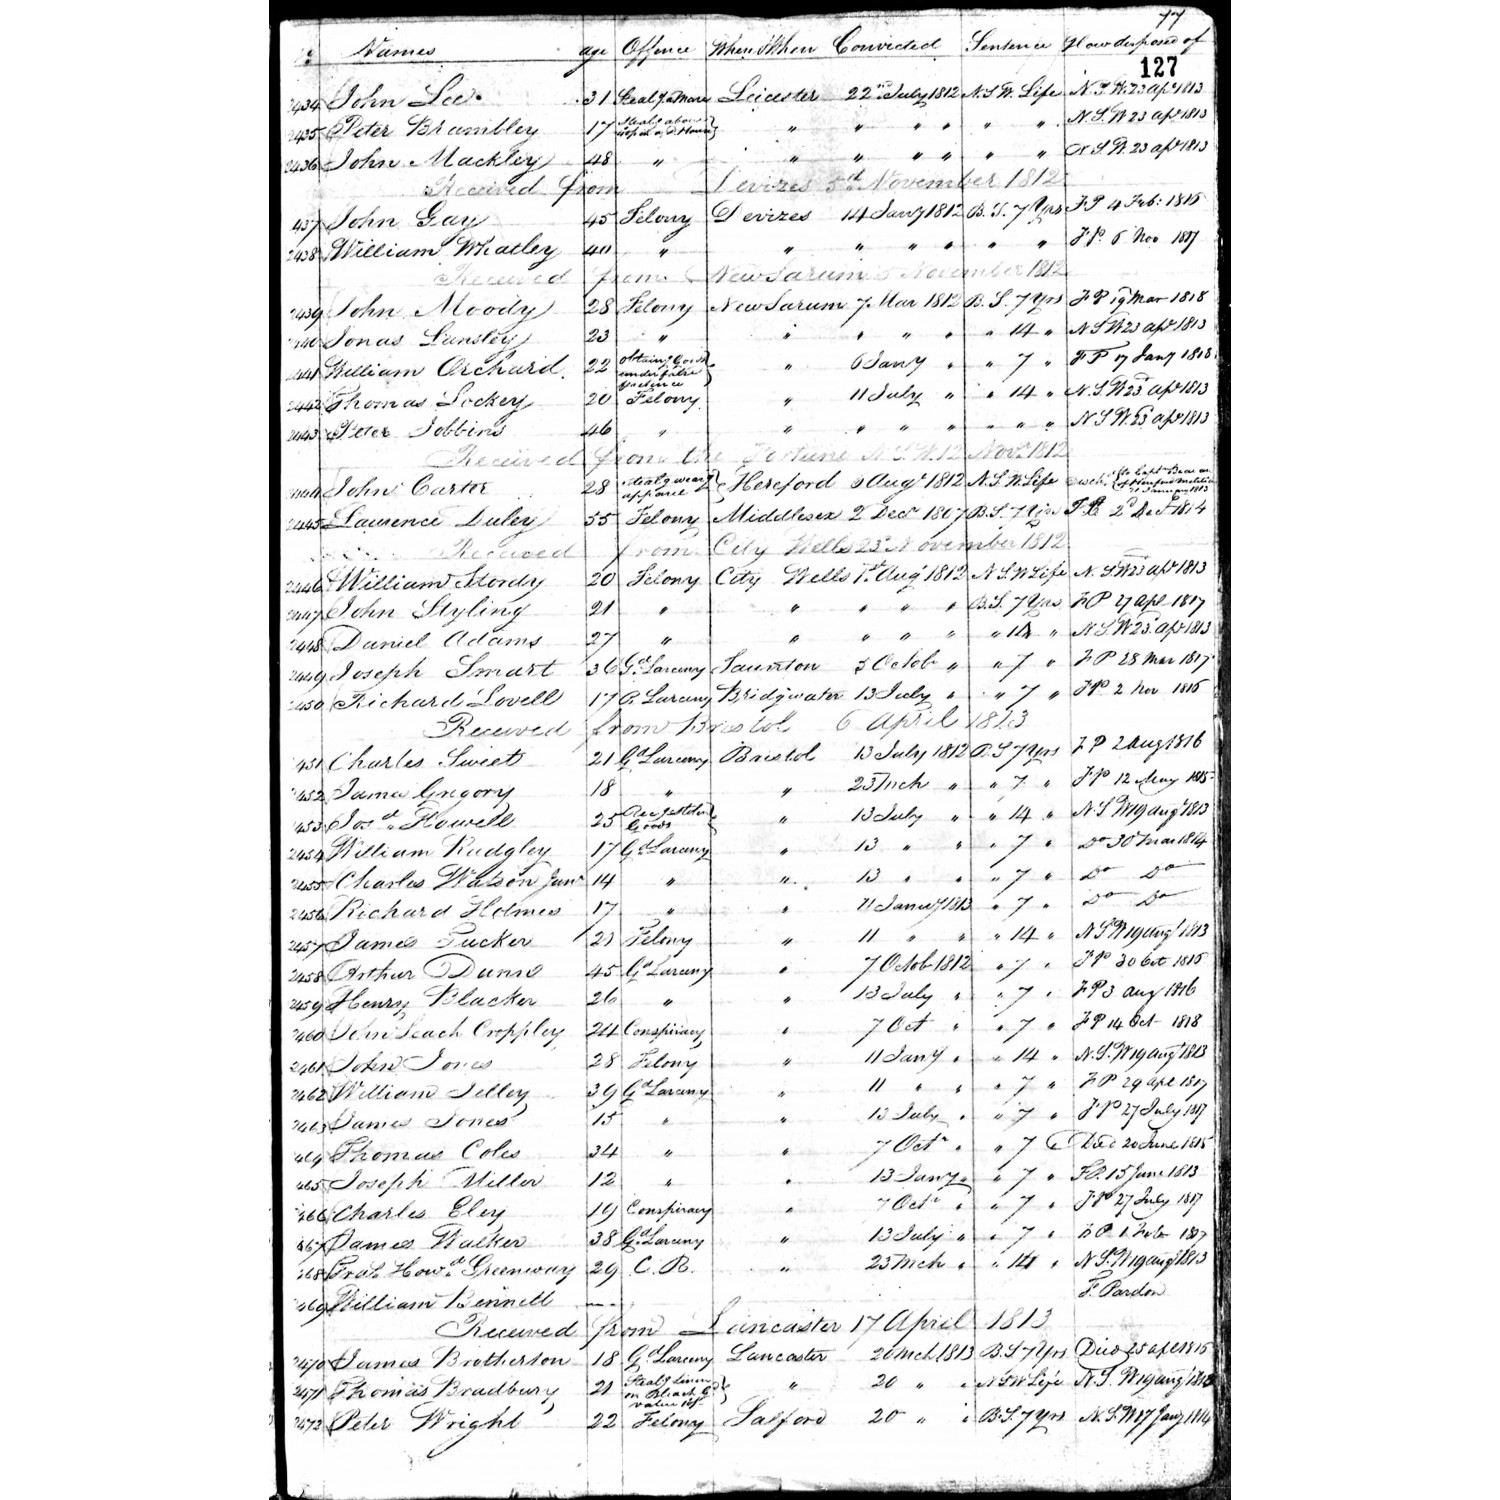 77
No Names age Offence When & Where Convicted Sentence How disposed of
127
2434 John Lee 31 Stealg a Mare Leicester 22nd July 1812 N.S.W. Life N.S.W. 23 apl 1813
2435 Peter Brambley 17 " " " " " " N.S.W. 23 apl 1813
2436 John Mackley 48 " " " " " " " N.S.W. 23 apl 1813
Received from Devizes 5th November 1812
2437 John Gay 45 Felony Devizes 14 Jany 1812 B.S. 7 Yrs F P 4 Feb: 1815
2438 William Whatley 40 " " " " " " " F.P. 6 Nov 1817
Received from New Sarum 5 November 1812
2439 John Moody 28 Felony New Sarum 7 Mar 1812 B.S. 7 Yrs F P 19 Mar 1818
2440 Jonas Lansley 23 " " " " " " 14 " N.S.W 23 apl 1813
2441 William Orchard 22 obtaing Goods under false pretence " 6 Jany " " 7 " F P 17 Jany 1818
2442 Thomas Lockey 20 Felony " 11 July " " 14 " N.S.W 23 apl 1813
2443 Peter Jobbins 46 " " " " " " " " N.S.W. 23 apl 1813
Received from the Fortune N.S.W. 12 Novr 1812
2444 John Carter 28 Stealg wearg apparel Hereford 3 Augt 1812 N.S.W. Life
2445 Laurence Duley 55 Felony Middlesex 2 Decr 1807 B.S. 7 Yrs F.P. 2d Decr 1814
Received from City Wells 23d November 1812
2446 William Stordy 20 Felony City Wells 1st Augt 1812 N.S.W Life N.S.W 23 apl 1813
2447 John Styling 21 " " " " " B.S. 7 Yrs F P 27 apl 1817
2448 Daniel Adams 27 " " " " " " 14 " N.S.W 23 apl 1813
2449 Joseph Smart 36 Gd Larceny Taunton 5 Octob " " 7 " F P 28 Mar 1817
2450 Richard Lovell 17 P. Larceny Bridgwater 13 July " " 7 " F.P. 2 Nov 1816
Received from Bristol 6 April 1813
2451 Charles Sweet 21 Gd Larceny Bristol 13 July 1812 B.S 7 Yrs F P 2 Aug 1816
2452 James Gregory 18 " " 23 Mch " " 7 " F P 12 May 1815
2453 Josh Howell 25 Recg Stolen Goods " 13 July " " 14 " N.S.W 19 augt 1813
2454 William Rudgley 17 Gd Larceny " 13 " " " 7 " Do 30 Mar 1814
2455 Charles Watson Junr 14 " " 13 " " " 7 " Do Do
2456 Richard Holmes 17 " " 11 January 1813 " 7 " Do Do
2457 James Tucker 21 Felony " 11 " " " 14 " N.S.W 19 augt 1813
2458 Arthur Dunn 45 Gd Larceny " 7 Octob 1812 " 7 " F.P. 30 Oct 1815
2459 Henry Blacker 26 " " 13 July " " 7 " F P 3 aug 1816
2460 John Leach Croppley 24 Conspiracy " 7 Oct " " 7 " F P 14 Oct 1818
2461 John Jones 28 Felony " 11 Jany " " 14 " N.S.W 19 augt 1813
2462 William Jelley 39 Gd Larceny " 11 " " " 7 " F P 29 apl 1817
2463 James Jones 15 " " 13 July " " 7 " F.P. 27 July 1817
2464 Thomas Coles 34 " " 7 Octr " " 7 " Died 20 June 1815
2465 Joseph Miller 12 " " 13 Jany " " 7 " F.P. 15 June 1813
2466 Charles Eley 19 Conspiracy " 7 Octr " " 7 " F.P. 27 July 1817
2467 James Walker 38 Gd Larceny " 13 July " " 7 " F P 1 Feb 1817
2468 Fras Howd Greenway 29 C. R. " 23 Mch " " 14 " N.S.W 19 augt 1813
2469 William Bennett F. Pardon
Received from Lancaster 17 April 1813
2470 James Brotherton 18 Gd Larceny Lancaster 20 Mch 1813 B.S 7 Yrs Died 25 apl 1815
2471 Thomas Bradbury 21 Stealg Linen " 20 " " N.S.W Life N.S.W 19 augt 1813
2472 Peter Wright 22 Felony Salford 20 " " B.S. 7 Yrs N.S.W 17 Jany 1814